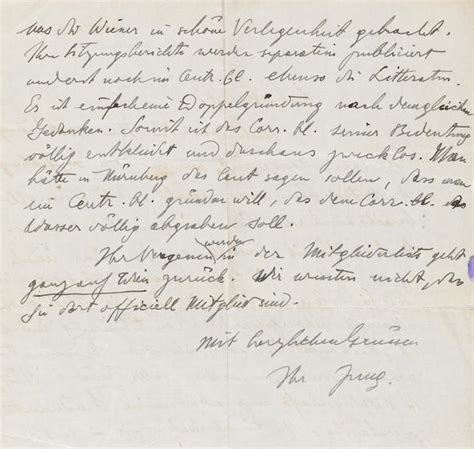 was die Wiener in schöne Verlegenheit gebracht.
Ihre Sitzungsberichte werden separatim publiciert
und erst noch im Centr. Bl. ebenso die Litteratur.
Es ist einfach eine Doppelgründung nach dem gleichen
Gedanken. Somit ist das Corr. Bl. seiner Bedeutung
völlig entkleidet und durchaus zwecklos. Man
hätte in Nürnberg das laut sagen sollen, dass man
ein Centr. Bl. gründen will, das dem Corr. Bl. das
Wasser völlig abgraben soll.
Ihr Vergessen werden in der Mitgliederliste geht
ganz auf Wien zurück. Wir wussten nicht, dass
Sie dort officiell Mitglied sind.
Mit herzlichen Grüssen
Ihr Jung.